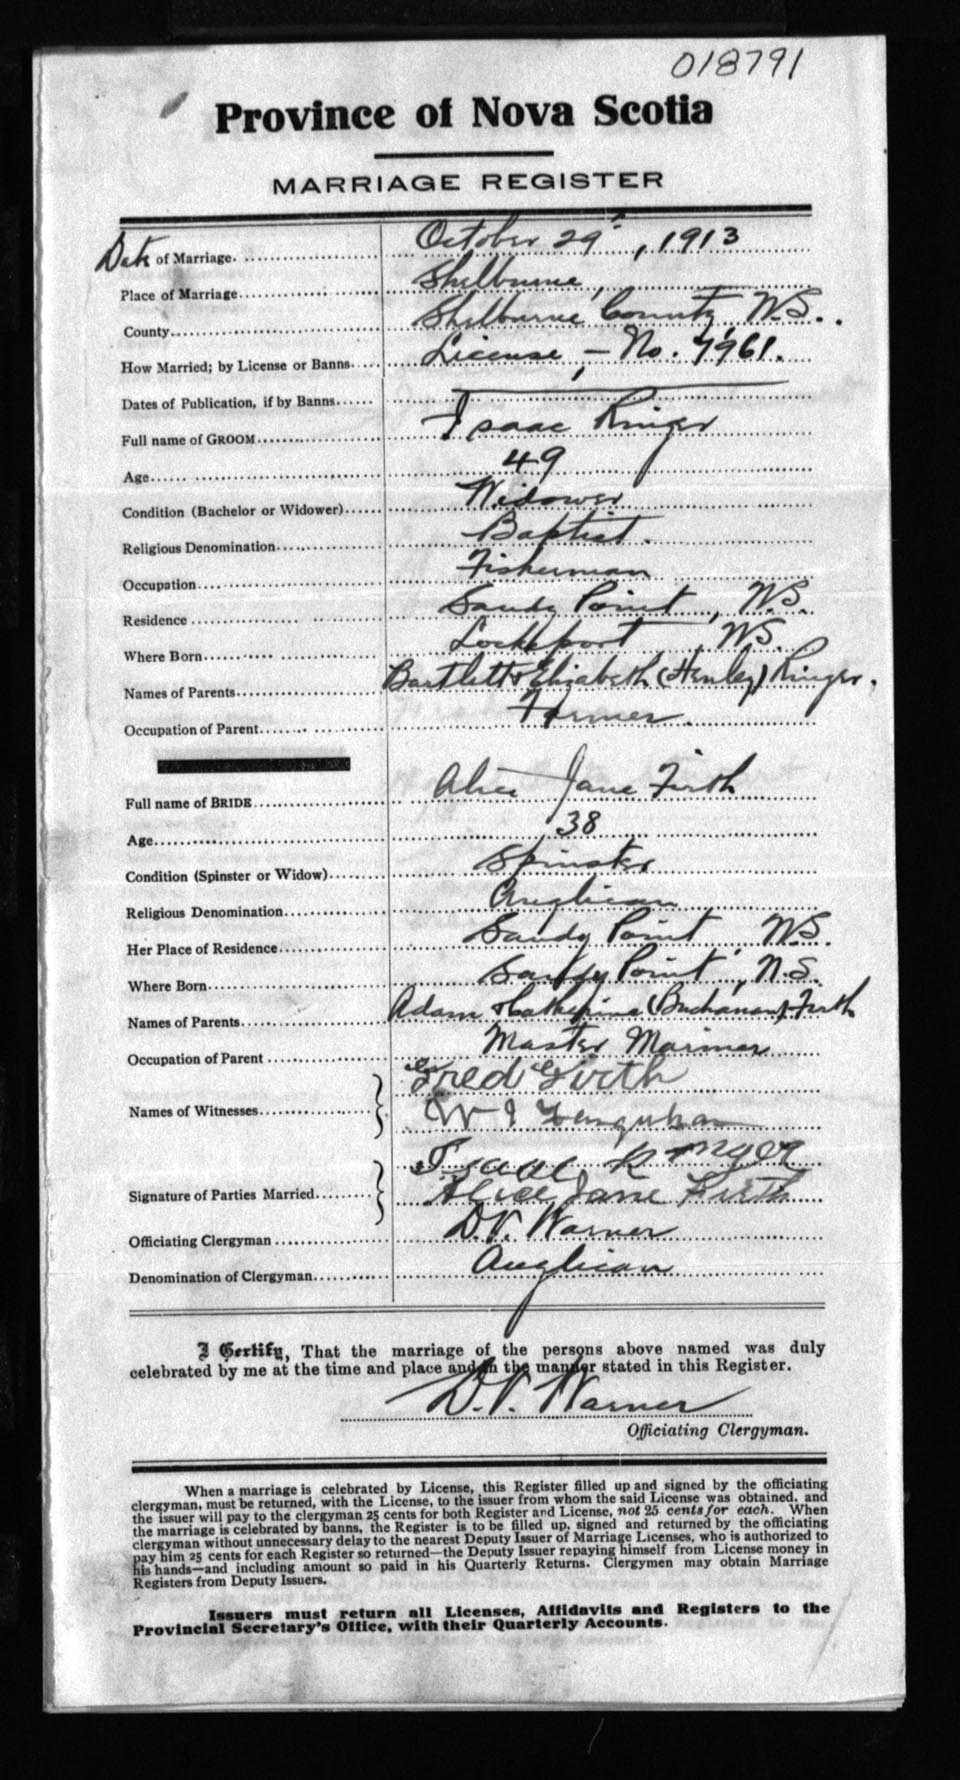 018791
Province of Nova Scotia
MARRIAGE REGISTER
Date of Marriage. October 29", 1913
Place of Marriage Shelburne,
County Shelburne County, N.S.
How Married; by License or Banns License, - No. 7961.
Dates of Publication, if by Banns
Full name of GROOM Isaac Ringer
Age 49
Condition (Bachelor or Widower) Widower
Religious Denomination Baptist.
Occupation Fisherman
Residence Sandy Point, N.S.
Where Born Lockeport, N.S.
Names of Parents Bartlett & Elizabeth (Henley) Ringer.
Occupation of Parent Farmer.
Full name of BRIDE Alice Jane Firth
Age 38
Condition (Spinster or Widow) Spinster
Religious Denomination Anglican
Her Place of Residence Sandy Point, N.S.
Where Born Sandy Point, N.S.
Names of Parents Adam & Catherine (Buchanan) Firth
Occupation of Parent Master Mariner
Fred Firth
Names of Witnesses
W
Isaac Ringer
Signature of Parties Married Alice Jane Firth
Officiating Clergyman D.V. Warner
Denomination of Clergyman Anglican
I Certify, That the marriage of the persons above named was duly
celebrated by me at the time and place and in the manner stated in this Register.
D.V. Warner
Officiating Clergyman.
When a marriage is celebrated by License, this Register filled up and signed by the officiating
clergyman, must be returned, with the License, to the issuer from whom the said License was obtained, and
the issuer will pay to the clergyman 25 cents for both Register and License, not 25 cents for each. When
the marriage is celebrated by banns, the Register is to be filled up, signed and returned by the officiating
clergyman without unnecessary delay to the nearest Deputy Issuer of Marriage Licenses, who is authorized to
pay him 25 cents for each Register so returned—the Deputy Issuer repaying himself from License money in
his hands—and including amount so paid in his Quarterly Returns. Clergymen may obtain Marriage
Registers from Deputy Issuers.
Issuers must return all Licenses, Affidavits and Registers to the
Provincial Secretary's Office, with their Quarterly Accounts.